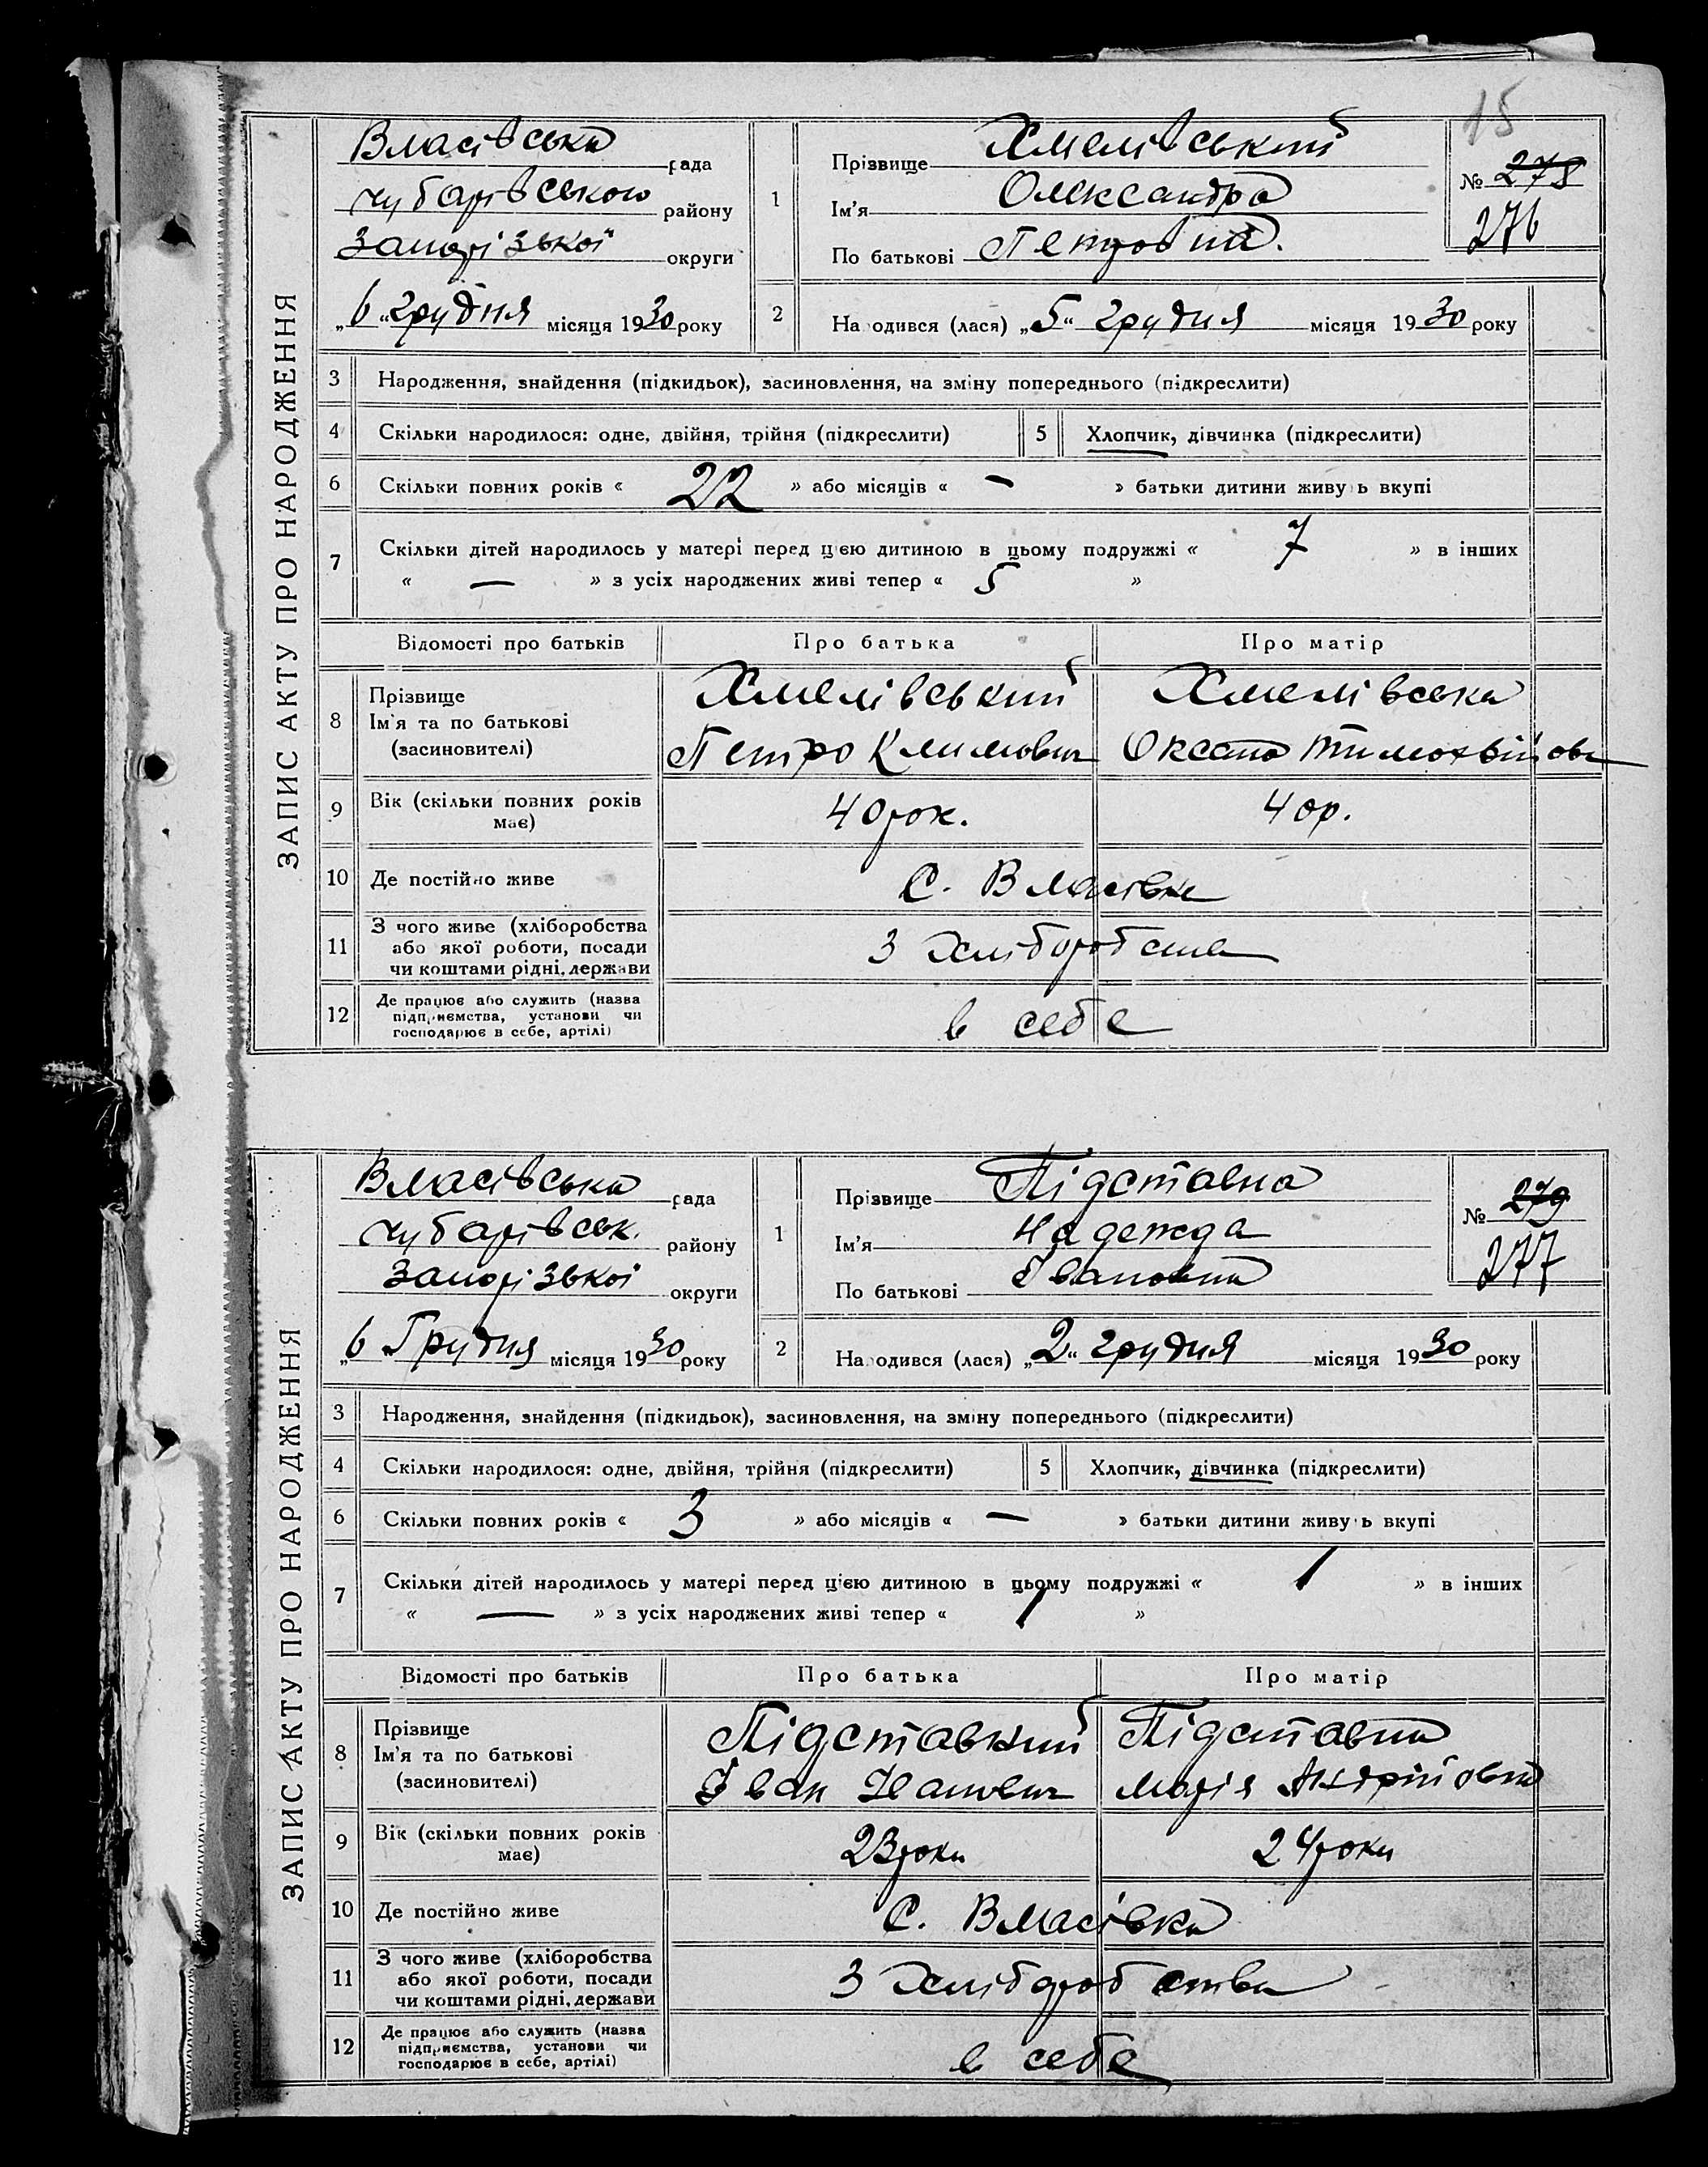 15
ЗАПИС АКТУ ПРО НАРОДЖЕННЯ
Власівська рада
Чубарівського району
Запорізької округи
„6“ грудня місяця 1930 року
1
Прізвище Хмелівський
Ім'я Олександра
По батькові Петровна.
№ 278
276
2 На одився (лася) „5“ грудня місяця 1930 року
3 Народження, знайдення (підкидьок), засиновлення, на зміну попереднього (підкреслити)
4 Скільки народилося: одне, двійня, трійня (підкреслити) 5 Хлопчик, дівчинка (підкреслити)
6 Скільки повних років « 22 » або місяців « — » батьки дитини живу ь вкупі
7 Скільки дітей народилось у матері перед цією дитиною в цьому подружжі « 7 » в інших
« — » з усіх народжених живі тепер « 5 »
Відомості про батьків Про батька Про матір
8 Прізвище
Ім'я та по батькові
(засиновителі)
Хмелівський
Петро Климович
Хмелівська
Оксана Тимохвійовн
9 Вік (скільки повних років
має)
40 рок. 40 р.
10 Де постійно живе с. Власівка
11 З чого живе (хліборобства
або якої роботи, посади
чи коштами рідні, держави
З хліборобства
12 Де працює або служить (назва
підприємства, установи чи
господарює в себе, артілі)
в себе
ЗАПИС АКТУ ПРО НАРОДЖЕННЯ
Власівська рада
Чубарівськ. району
Запорізької округи
„6“ Грудня місяця 1930 року
1
Прізвище Підставна
Ім'я Надежда
По батькові Івановна
№ 279
277
2 На одився (лася) „2“ грудня місяця 1930 року
3 Народження, знайдення (підкидьок), засиновлення, на зміну попереднього (підкреслити)
4 Скільки народилося: одне, двійня, трійня (підкреслити) 5 Хлопчик, дівчинка (підкреслити)
6 Скільки повних років « 3 » або місяців « — » батьки дитини живу ь вкупі
7 Скільки дітей народилось у матері перед цією дитиною в цьому подружжі « 1 » в інших
« — » з усіх народжених живі тепер « 1 »
Відомості про батьків Про батька Про матір
8 Прізвище
Ім'я та по батькові
(засиновителі)
Підставний
Іван Іванович
Підставна
Марія Андрійовна
9 Вік (скільки повних років
має)
23 роки 24 роки
10 Де постійно живе с. Власівка
11 З чого живе (хліборобства
або якої роботи, посади
чи коштами рідні, держави
З хліборобства
12 Де працює або служить (назва
підприємства, установи чи
господарює в себе, артілі)
в себе